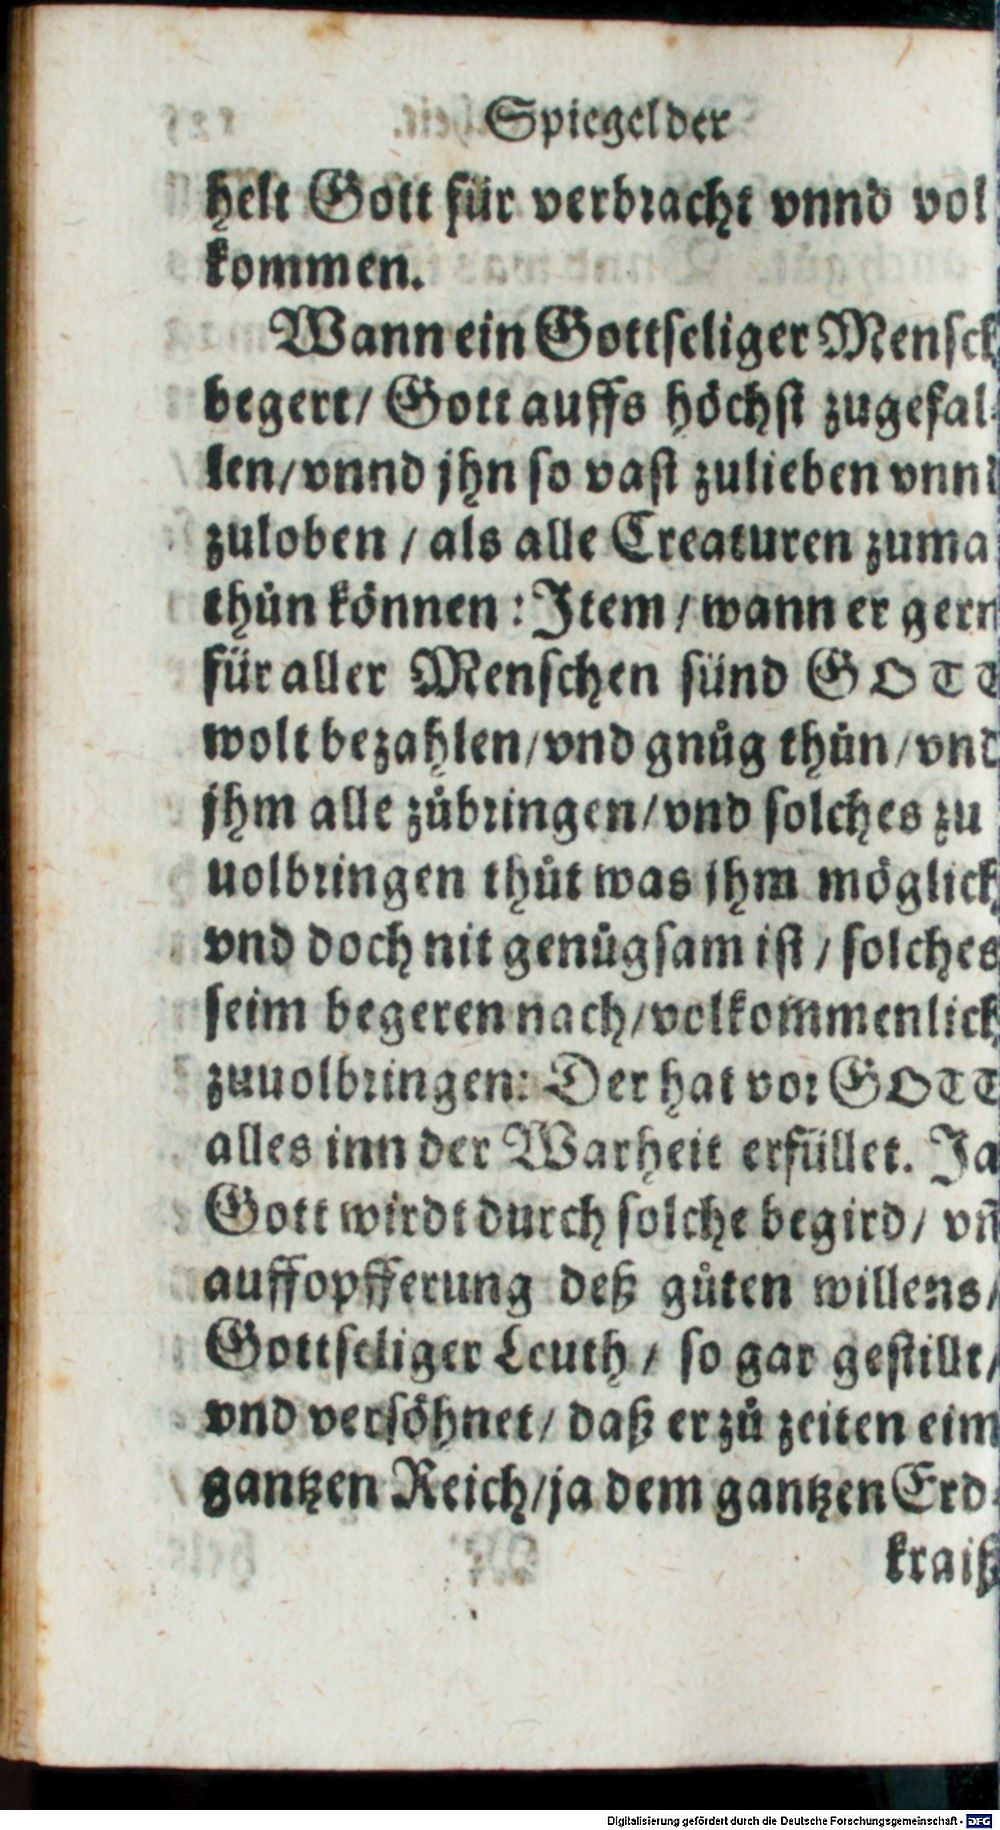 Spiegel der
helt Gott für verbracht vnnd vol
kommen.
Wann ein Gottseliger Mensch
begert/ Gott auffs höchst zugefal-
len/vnnd jhn so vast zulieben vnnd
zuloben / als alle Creaturen zuma
thůn können : Item / wann er gern
für aller Menschen sünd GOTT
wolt bezahlen/vnd gnůg thůn/vnd
jhm alle zůbringen/vnd solches zu
uolbringen thůt was jhm möglich
vnd doch nit genůgsam ist / solches
seim begeren nach/volkommenlich
zuuolbringen: Der hat vor GOTT
alles inn der Warheit erfüllet. Ja
Gott wirdt durch solche begird/ vñ
auffopfferung deß gůten willens/
Gottseliger Leuth / so gar gestillt/
vnd versöhnet/ daß er zů zeiten eim
gantzen Reich/ja dem gantzen Erd-
kraiß
Digitalisierung gefördert durch die Deutsche Forschungsgemeinschaft - DFG